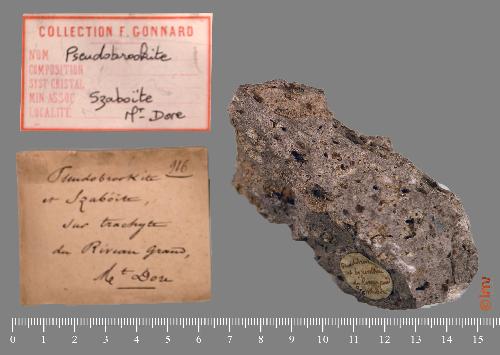 COLLECTION F. GONNARD
NOM Pseudobrookite
COMPOSITION
SYST CRISTAL
MIN ASSOC Szaboïte
LOCALITE Mt Dore
916
Pseudobrookite
et Szaboïte,
sur trachyte
du Riveau Grand,
Mt Dore
0 1 2 3 4 5 6 7 8 9 10 11 12 13 14 15